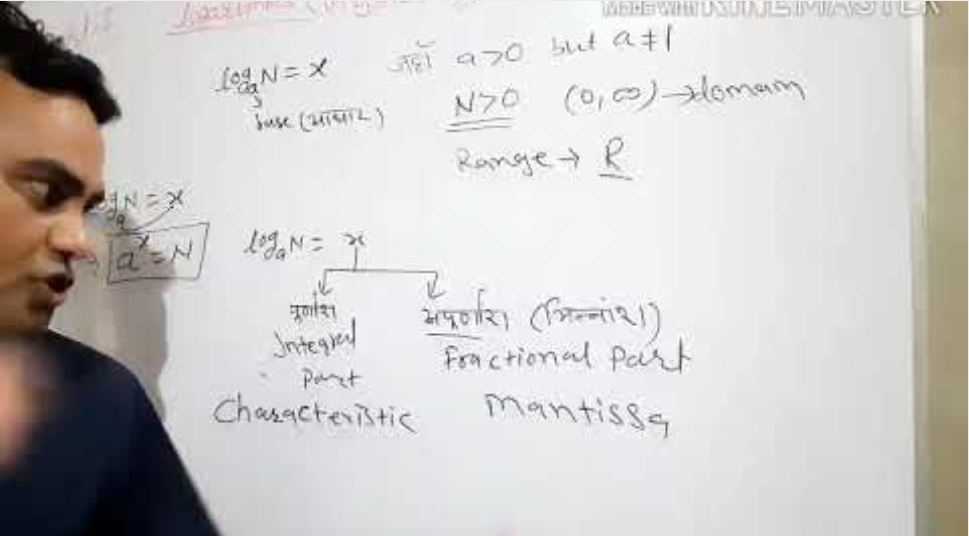 Made with KINEMASTER
log_a N = x जहाँ a>0 but a≠1
base (आधार) N>0 (0,∞)→domain
Range → R
log_a N = x
a^x = N
log_a N = x
पूर्णांश अपूर्णांश (भिन्नांश)
Integral Fractional Part
Part
Characteristic Mantissa